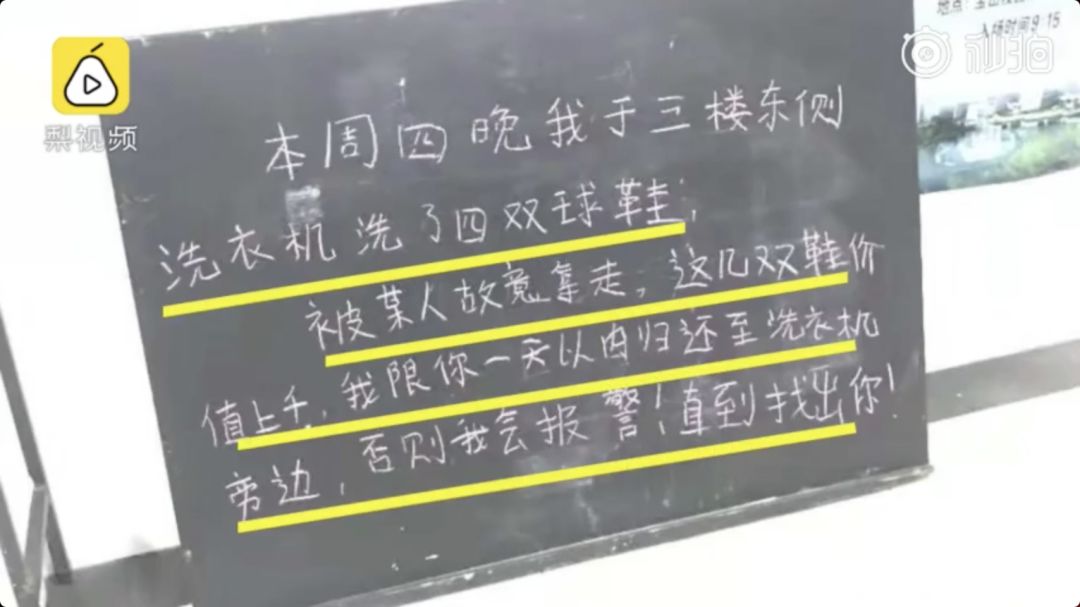 梨视频
秒拍
入场时间9:15
本周四晚我于三楼东侧
洗衣机洗了四双球鞋,
被某人故意拿走,这几双鞋价
值上千,我限你一天以内归还至洗衣机
旁边,否则我会报警!直到找出你!